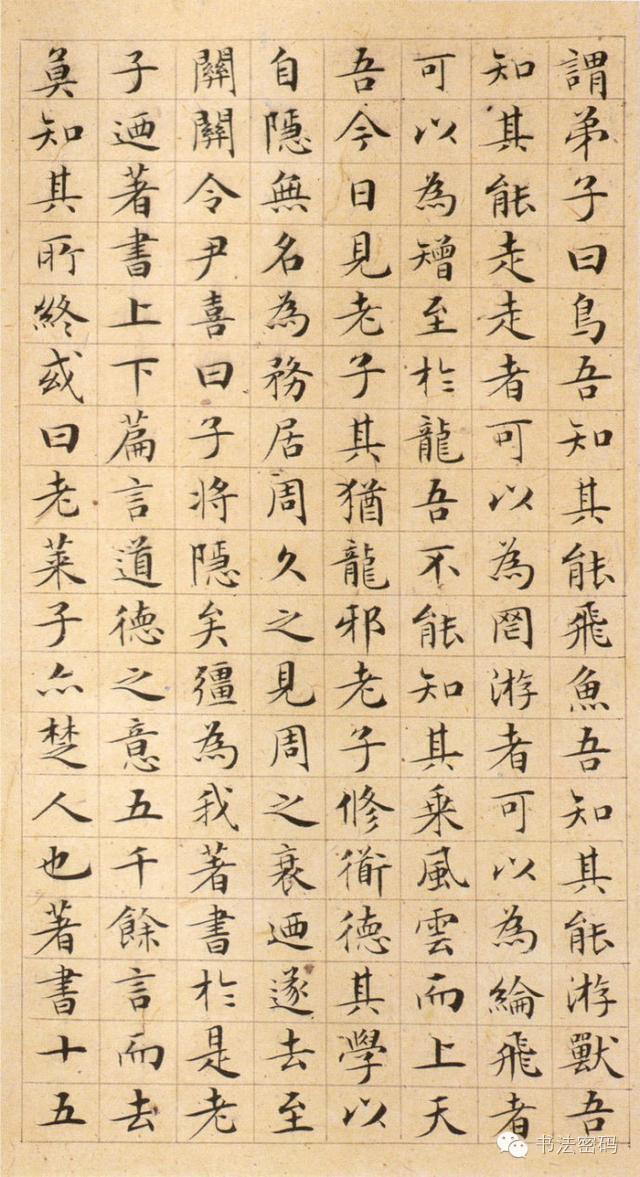 謂弟子曰鳥吾知其能飛魚吾知其能游獸吾
知其能走走者可以為罔游者可以為綸飛者
可以為矰至於龍吾不能知其乘風雲而上天
吾今日見老子其猶龍邪老子修衜德其學以
自隱無名為務居周久之見周之衰迺遂去至
關關令尹喜曰子將隱矣彊為我著書於是老
子迺著書上下篇言道德之意五千餘言而去
莫知其所終或曰老萊子亦楚人也著書十五
书法密码